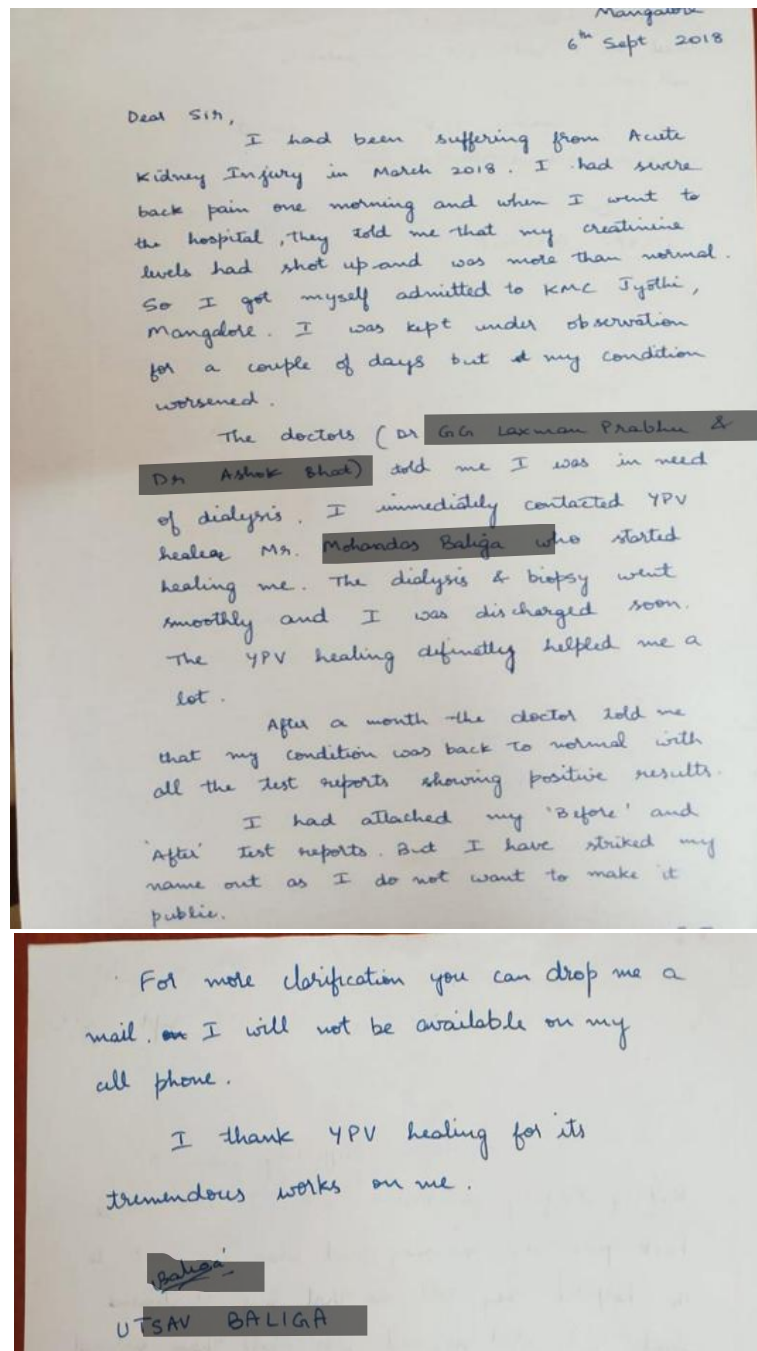 Mangalore
6th Sept 2018
Dear Sir,
I had been suffering from Acute
Kidney Injury in March 2018. I had severe
back pain one morning and when I went to
the hospital, they told me that my creatinine
levels had shot up and was more than normal.
So I got myself admitted to KMC Jyothi,
Mangalore. I was kept under observation
for a couple of days but my condition
worsened.
The doctors (Dr
told me I was in need
of dialysis. I immediately contacted YPV
healer Mr. who started
healing me. The dialysis & biopsy went
smoothly and I was discharged soon.
The YPV healing definetly helpled me a
lot.
After a month the doctor told me
that my condition was back to normal with
all the test reports showing positive results.
I had attached my 'Before' and
'After' test reports. But I have striked my
name out as I do not want to make it
public.
For more clarification you can drop me a
mail. I will not be available on my
cell phone.
I thank YPV healing for its
tremendous works on me.